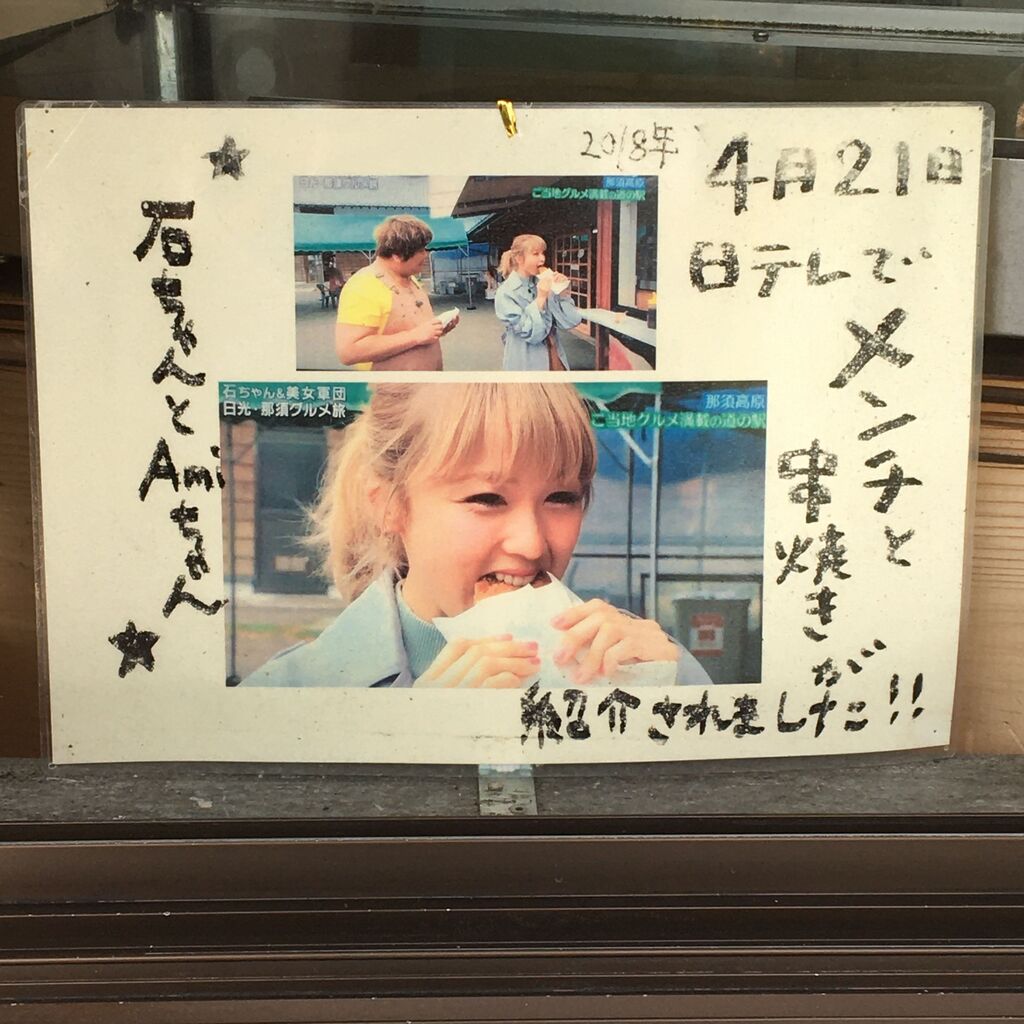 2018年
4月21日
日テレで
メンチと
串焼きが
紹介されました!!
★石ちゃんとAmiちゃん★
日光・那須グルメ旅
那須高原
ご当地グルメ満載の道の駅
石ちゃん&美女軍団
日光・那須グルメ旅
那須高原
ご当地グルメ満載の道の駅